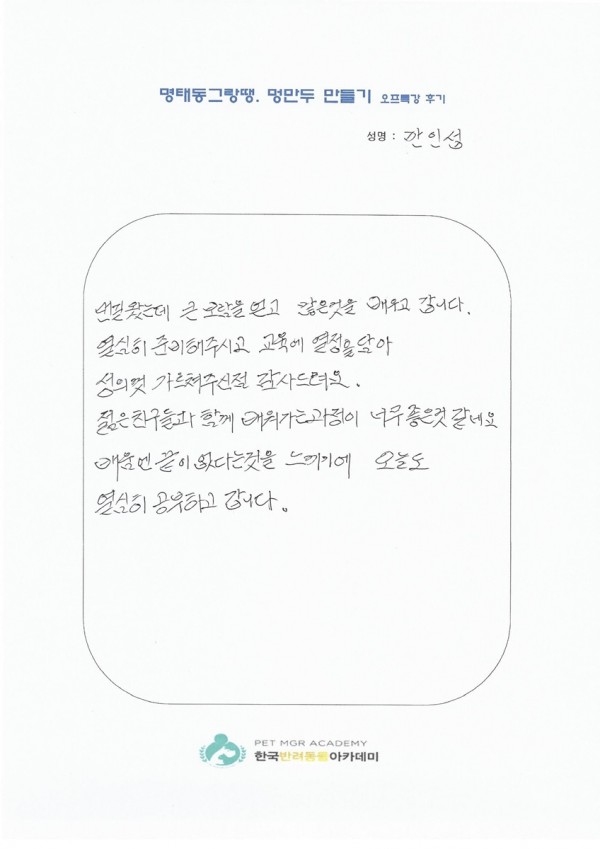 명태동그랑땡. 멍만두 만들기 오프특강 후기
성명 : 깐인섬
왔는데 큰 보람을 얻고 많은것을 배우고 갑니다.
열심히 준비해주시고 교육에 열정을 담아
성의껏 가르쳐주신점 감사드려요.
젊은친구들과 함께 배워가는과정이 너무 좋은것 같네요
배움엔 끝이 없다는것을 느끼기에 오늘도
열심히 공부하고 갑니다.
PET MGR ACADEMY
한국반려동물아카데미